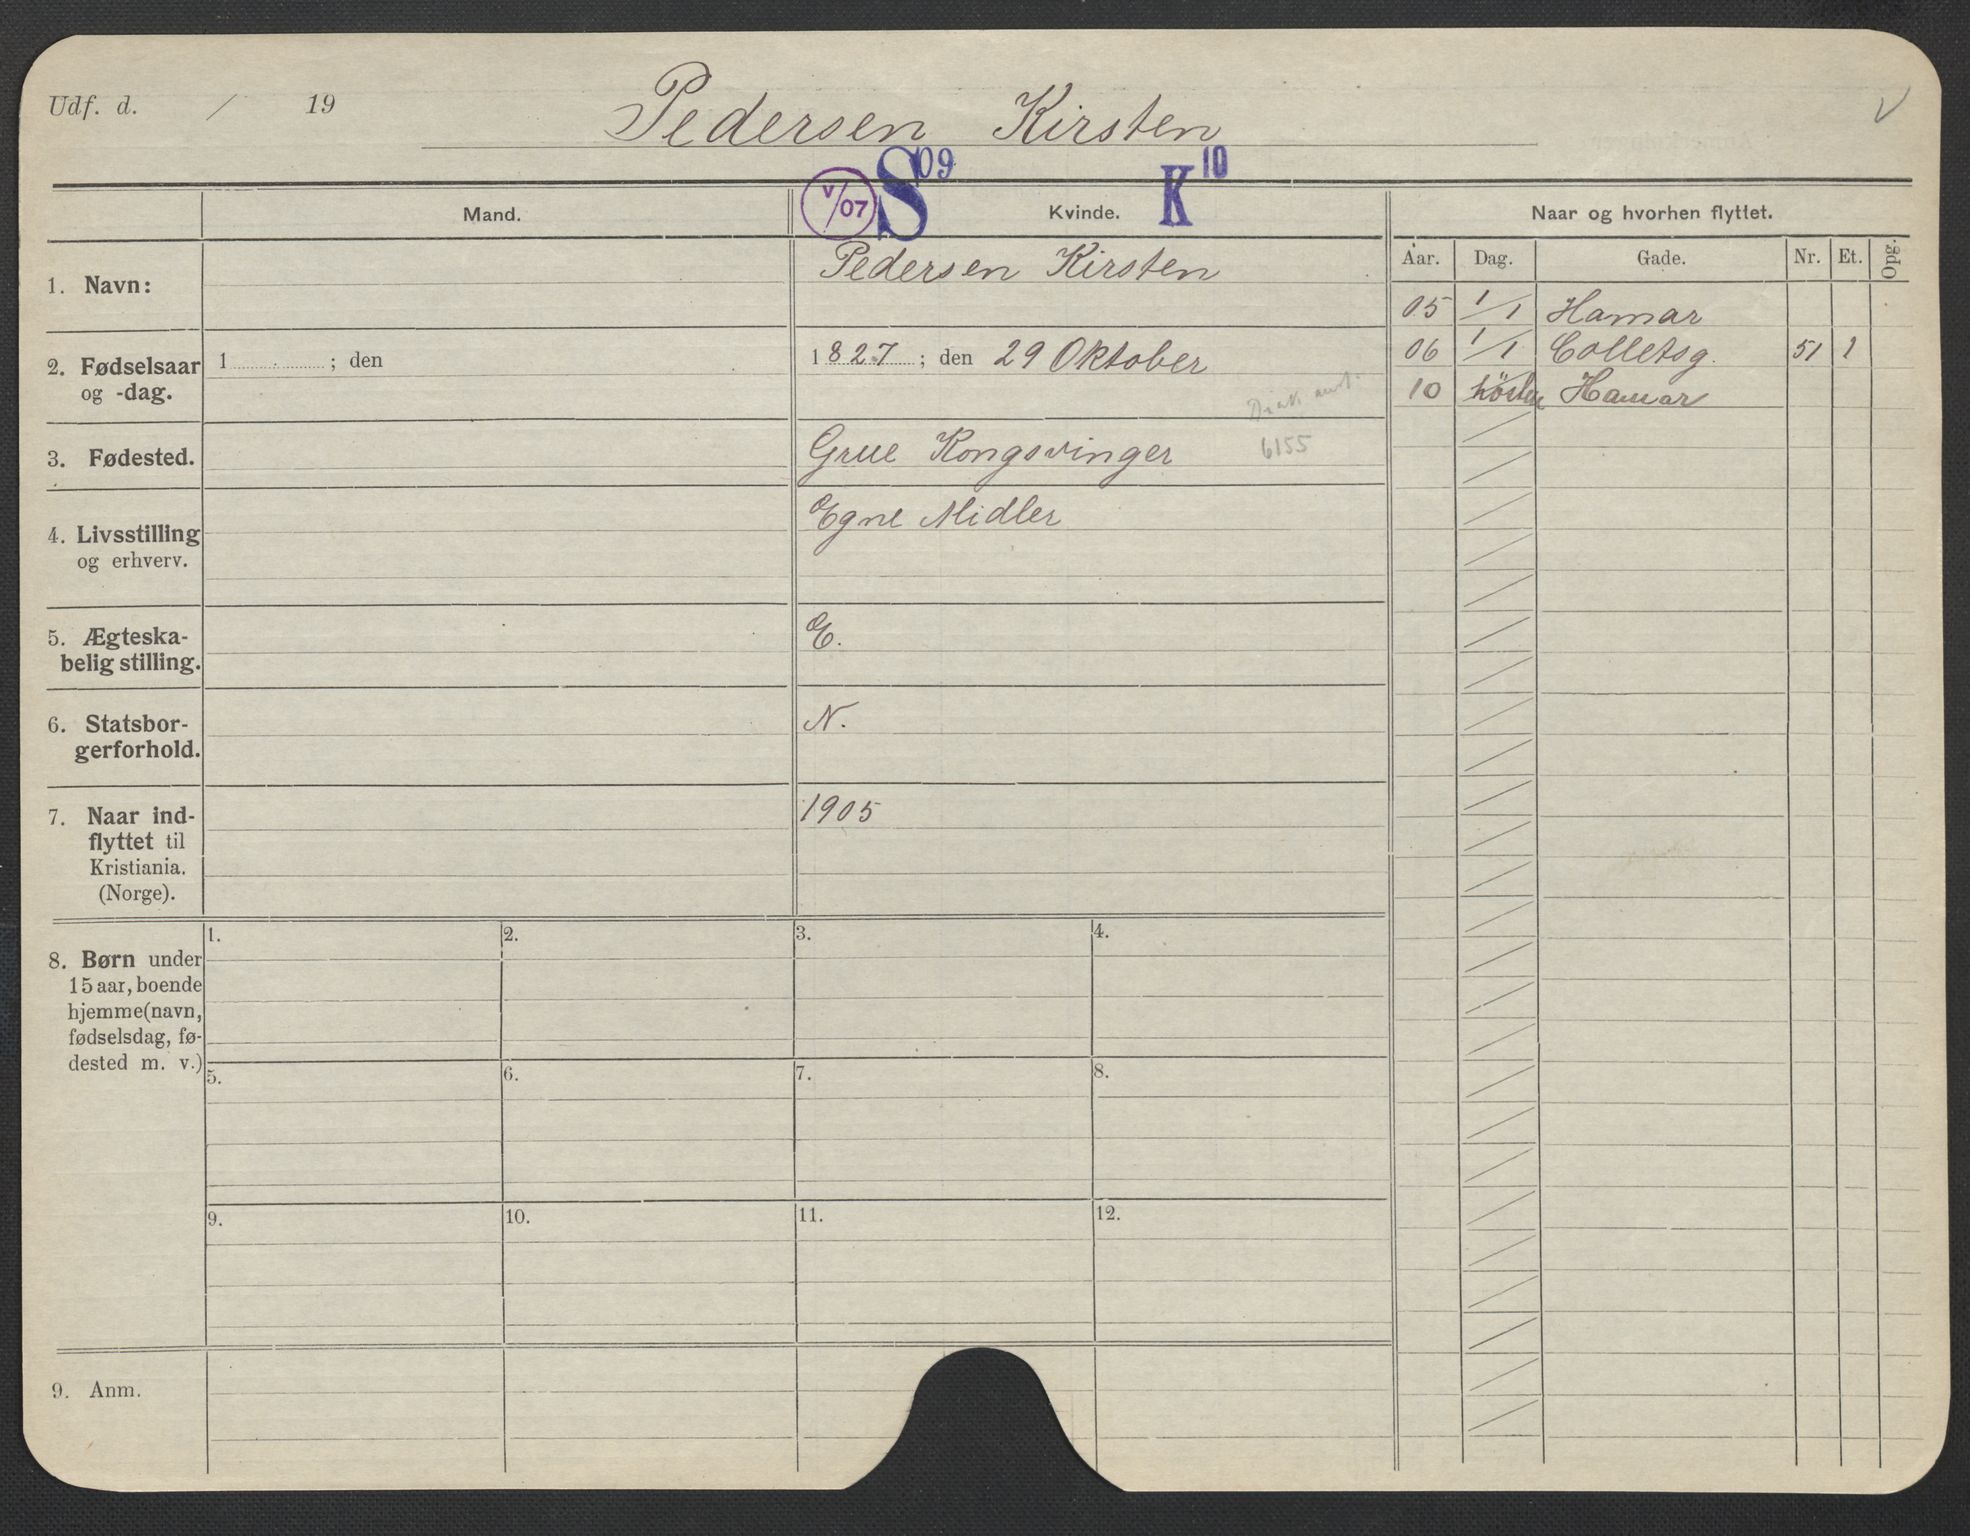 Udf. d. / 19
Pedersen Kirsten
V
V/07 S 09 K 10
Mand. Kvinde. Naar og hvorhen flyttet.
Aar. Dag. Gade. Nr. Et. Opg.
1. Navn: Pedersen Kirsten
05 1/1 Hamar
06 1/1 Colletsg. 51 1
10 høsten Hamar
2. Fødselsaar og -dag.
1 ; den
1827 ; den 29 Oktober
3. Fødested. Grue Kongsvinger
6155
4. Livsstilling og erhverv.
Egne Midler
5. Ægteska-
belig stilling.
E.
6. Statsbor-
gerforhold.
N.
7. Naar ind-
flyttet til
Kristiania.
(Norge).
1905
8. Børn under
15 aar, boende
hjemme (navn,
fødselsdag, fø-
dested m. v.)
1. 2. 3. 4.
5. 6. 7. 8.
9. 10. 11. 12.
9. Anm.